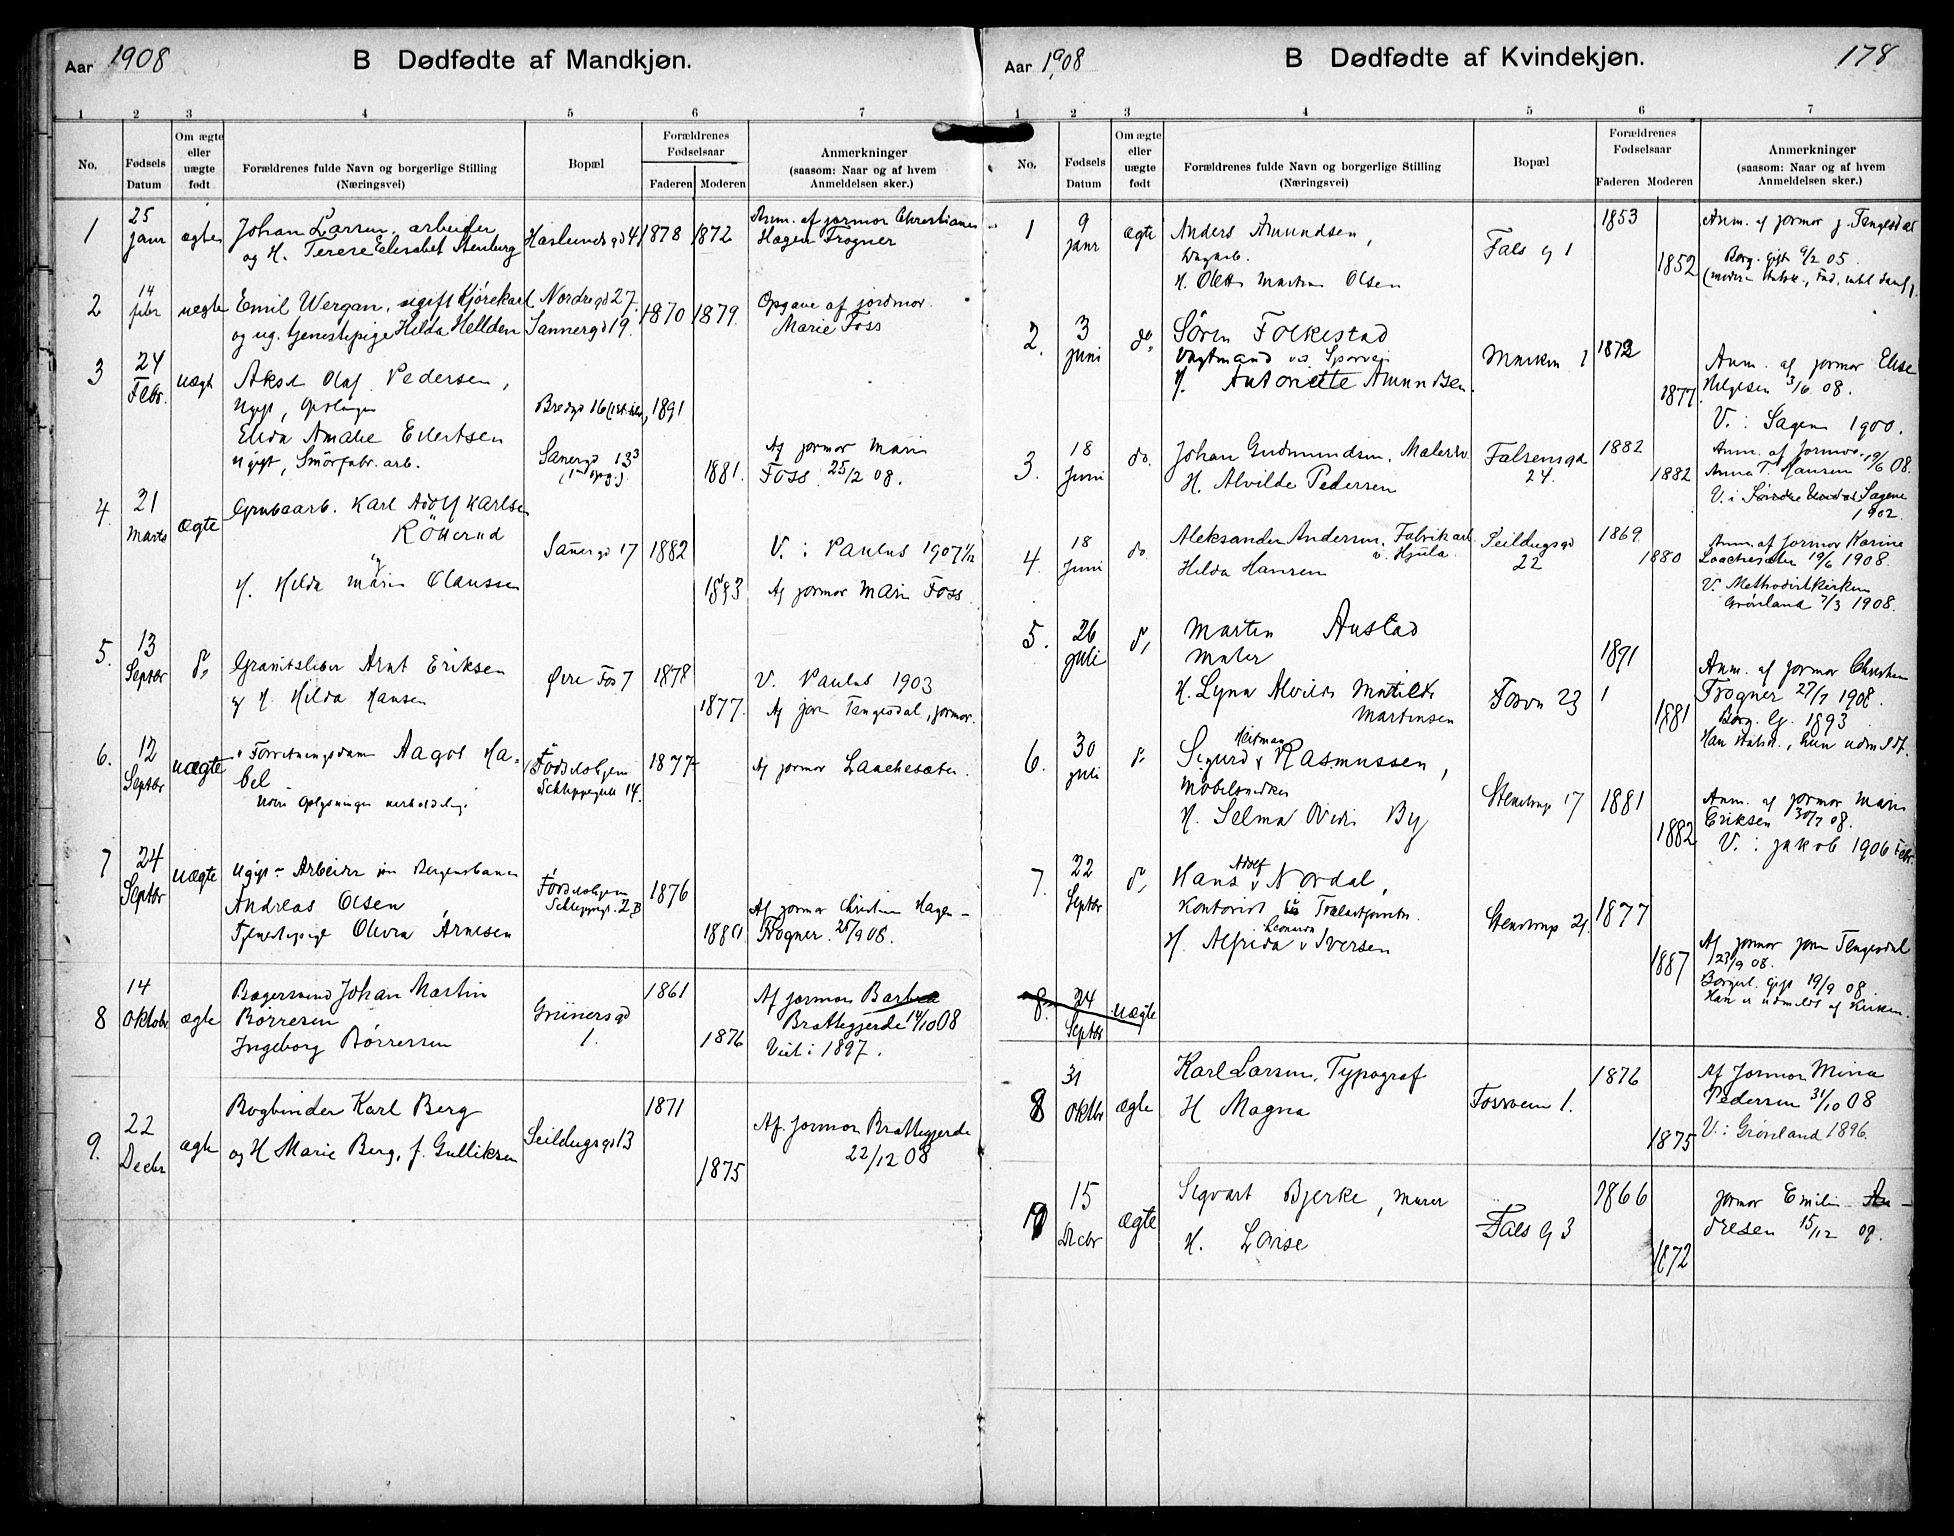 Aar 1908
B Dødfødte af Mandkjøn.
1 2 3 4 5 6 7
No.
Fødsels Datum
Om ægte eller uægte født
Forældrenes fulde Navn og borgerlige Stilling
(Næringsvei)
Bopæl
Forældrenes Fødselsaar
Faderen Moderen
Anmerkninger
(saasom: Naar og af hvem
Anmeldelsen sker.)
1 25 Janr ægte
Johan Larsen, arbeider
og H. Terese Elisabet Stenberg
Haslunds gd 4 1878 1872
Anm. af jormor Christiane
Hagen Frogner
2 14 febr uægte
Emil Wergan, ugift Kjørekarl
og ug. tjenestepige Hilda Hellden
Nordregd 27.
Sannergd 19. 1870 1879.
Opgave af jordmor
Marie Foss
3 24 Febr. uægt
Aksel Olaf Pedersen,
Ugift,
Bredgd 16 1891
Elida Amalie Evertsen
Ugift, Smörfabr. arb.
Sanergd 13
1881.
Af jormor Marie
Foss 25/2 08.
4. 21 Marts ægte
Grubearb. Karl Adolf Karlsen
Rötterud
og
H. Hilda Marie Claussen
Sanergd 17 1882
1883
V. i Paulus 1907
Af jormor Marie Foss
5. 13 Septbr do
Granitsliber Arnt Eriksen
og H. Hilda Hansen
Øvre Fos 7 1878
1877.
V. Paulus 1903
Af Jore Tengesdal, jormor.
6. 12 Septbr uægte
Forretningsdame Aagot Ha-
bel
Nærv oplysninger
Födselshjem
Schleppegrell 14. 1877
Af jormor Laachesæter.
7 24 Septbr uægte
Ugift - Arbeider paa Bergensbanen
Andreas Olsen
Tjenestepige Olivia Arnesen
Födselshjem
Schleppegr. 2B 1876
Af jormor Christine Hagen-
Frogner. 25/9 08.
8 14 Oktobr ægte
Bøgersvend Johan Martin
Børresen
Ingeborg Børresen
Grünersgd
1. 1861
1876
Af jormor Barbra
Brattegjerde 14/10 08
Viet i 1897.
9. 22 Decbr ægte
Bogbinder Karl Berg
og H Marie Berg, f. Gulliksen
Seildugsgd 13 1871
1875
Af Jormor Brattegjerde
22/12 08
Aar 1908
B Dødfødte af Kvindekjøn.
178
1 2 3 4 5 6 7
No.
Fødsels Datum
Om ægte eller uægte født
Forældrenes fulde Navn og borgerlige Stilling
(Næringsvei)
Bopæl
Forældrenes Fødselsaar
Faderen Moderen
Anmerkninger
(saasom: Naar og af hvem
Anmeldelsen sker.)
1 9 janr ægte
Anders Amundsen,
H. Olette Martine Olsen
Fals G 1 1853
1852
Anm. af jormor J. Tengesdal
Borg. gift 9/2 05.
2. 3 juni do,
Sören Folkestad
Vagtmand ved Sporvei
H. Antoniette Amundsen.
Marken 1 1872
1877
Anm. af jormor Elise
Helgesen 3/6 08.
V. i Sagen 1900.
3. 18 Juni do.
Johan Gudmundsen, Malersv.
H. Alvilde Pedersen
Falsensgd
24. 1882
1882
Anm. af Jormor
Anna T. Hansen 19/6 08.
V. i Søndre Undal Sagene
1902.
4. 18 Juni do
Aleksander Andersen, Fabrikarb.
v. Hjula.
Hilda Hansen
Seildugsgd
22 1869
1880
Anm. af Jormor Karine
Laachesæter 19/6 1908.
V. Methodistkirken
Grønland 7/3 1908.
5. 26 juli do,
Martin Austad
Maler
H. Lyna Alvilde Matilde
Martinsen
Fosvn 23 1891
1881
Anm. af jormor Christine
Frogner 27/7 1908.
Borg. G. 1893
Han statsk., hun udmeldt.
6. 30 juli do
Heitman
Sigurd v Rasmussen,
Möbelsnedker
H. Selma Ovidie By
Stenstrup 17 1881
1882
Anm. af jormor Marie
Eriksen 30/7 08.
V. i Jakob 1906 Febr.
7. 22 Septbr do,
Adolf
Hans v Nordal,
Kontorist i Trælastforretn.
Leonora
H. Alfrida v Iversen
Stenstrup 21. 1877
1887
Af jormor Jore Tengesdal
23/9 08.
Borgerl. gift 19/9 08.
Han er udmeldt af Kirken.
8. 24 Septbr uægte
8 31 Oktbr ægte
Karl Larsen, Typograf
H Magna
Fossveien 1. 1876
1875
Af Jormor Mina
Pedersen 31/10 08
V. i Grønland 1896.
10 15 Decbr ægte
Sigvart Bjerke, murer
H. Lovise
Fals G 3 1866
1872
jormor Emilie An-
dresen 15/12 09.